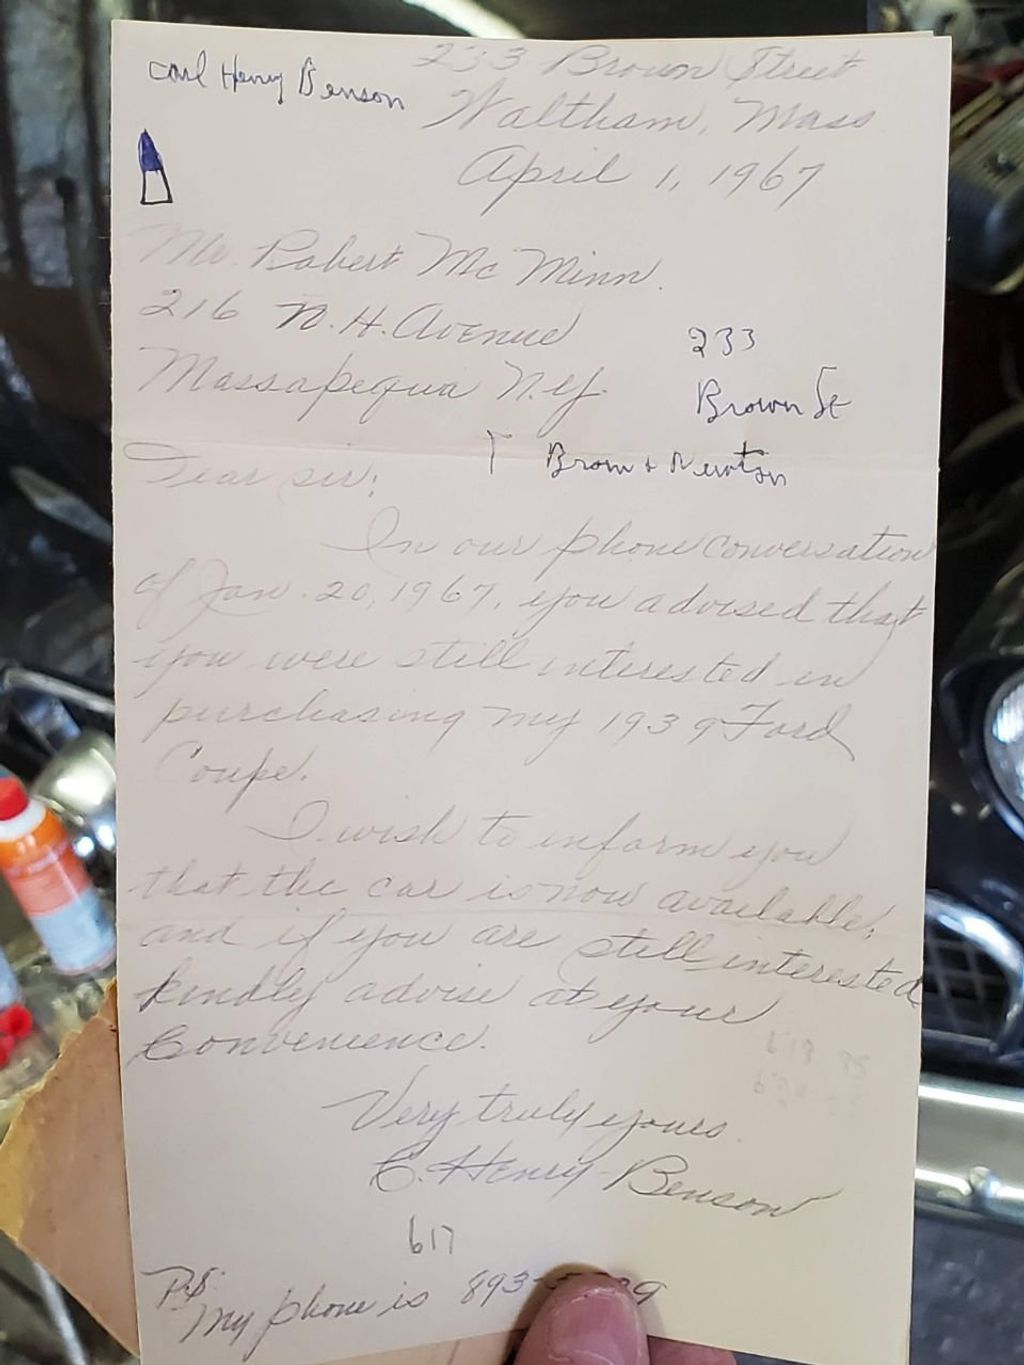 Carl Henry Benson
233 Brown Street
Waltham, Mass
April 1, 1967
Mr. Robert McMinn.
216 N.H. Avenue
Massapequa N.Y.
233
Brown St
Brown + Newton
Dear sir;
In our phone conversation
of Jan. 20, 1967, you advised that
you were still interested in
purchasing my 1939 Ford
Coupe.
I wish to inform you
that the car is now available,
and if you are still interested
kindly advise at your
Convenience.
Very truly yours
C. Henry Benson
617
P.S.
My phone is 893-